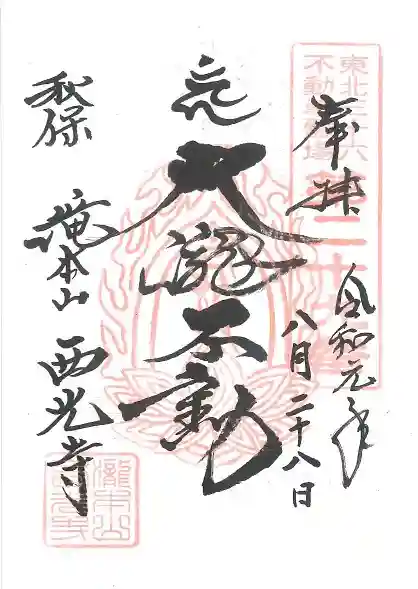 東北三十六
不動尊霊場
奉拝
令和元年
八月二十八日
大瀧不動
秋保
滝本山 西光寺